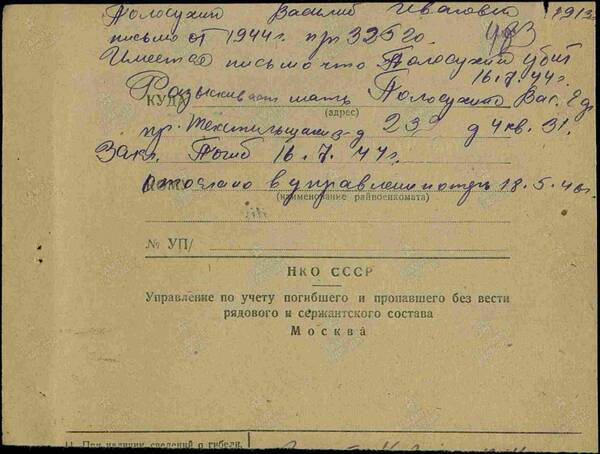 Полосухин Василий Иванович 1913г
письмо от 1944г. пр 32520.
Имеется письмо что Полосухин убит
16.7.44г.
КУДА Разыскивает мать Полосухина Вас.
(адрес)
пр. Текстильщиков д 23а д 4 кв. 31.
Закл. Погиб 16.7.44г.
отослано в управление потерь 18.5.46г.
(наименование райвоенкомата)
№ УП/
НКО СССР
Управление по учету погибшего и пропавшего без вести
рядового и сержантского состава
Москва
11. При наличии сведений о гибели,